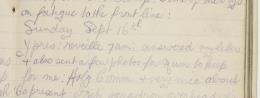 on fatigue to the front line:
Sunday Sept 16th
Ypres: reveille 7am: answered my letters
+ also sent a few photos for Mum to keep
for me: Holy Comm + very nice about
present